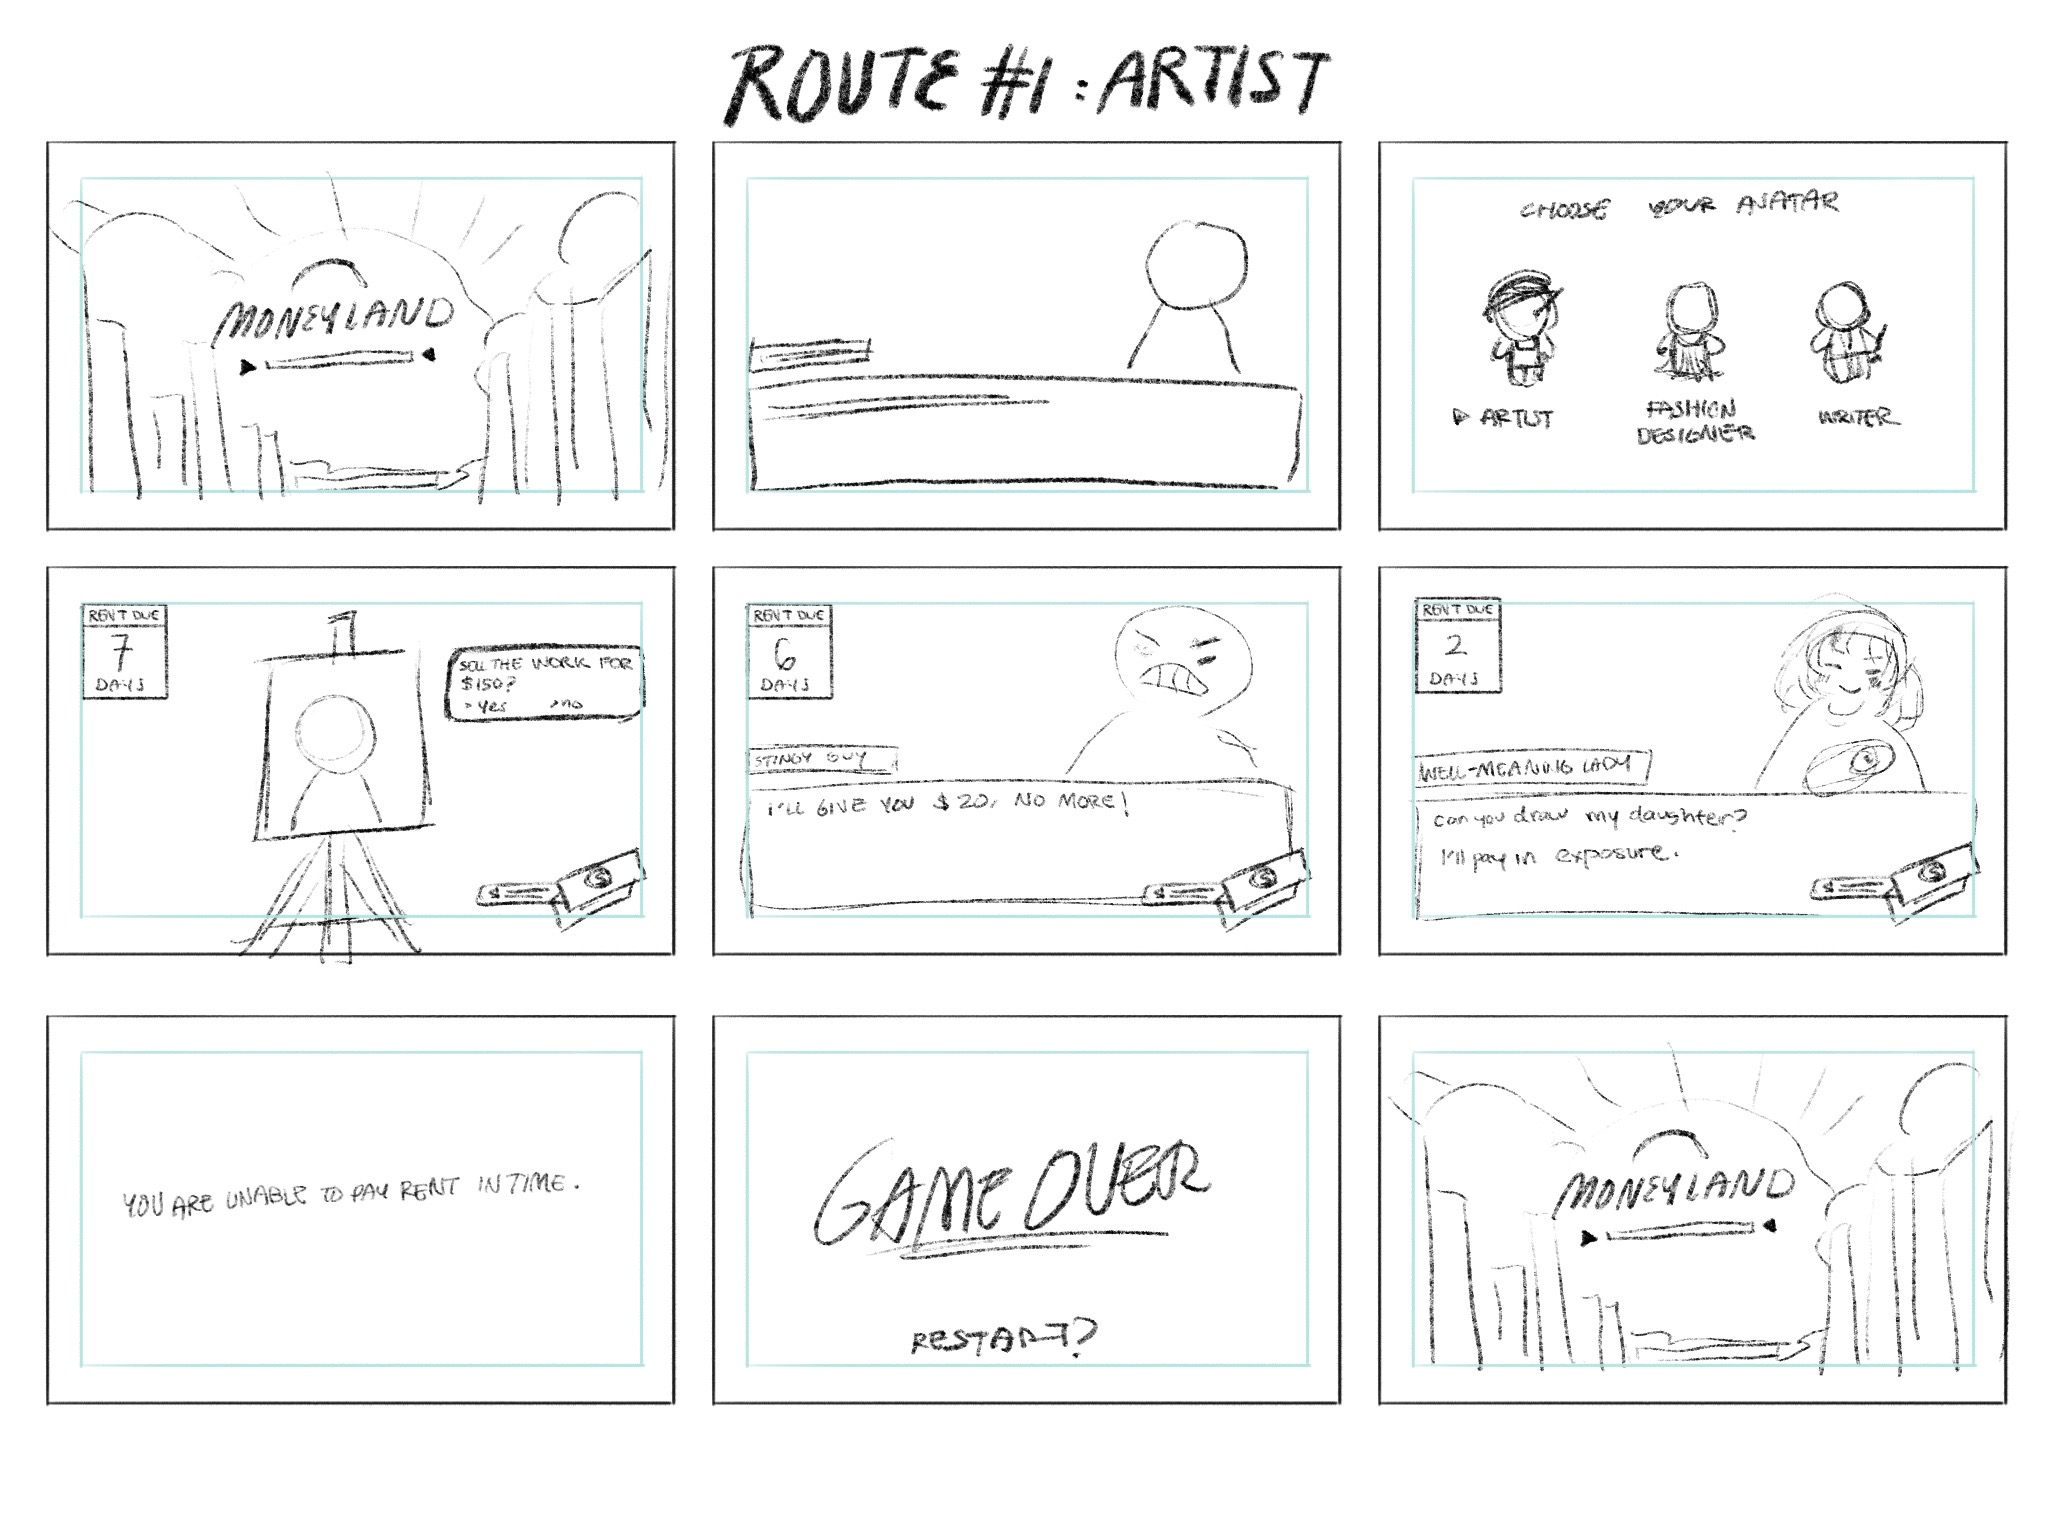 ROUTE #1 : ARTIST
MONEYLAND
CHOOSE YOUR AVATAR
ARTIST
FASHION
DESIGNER
WRITER
RENT DUE
7
DAYS
SELL THE WORK FOR
$150?
> yes >no
$
$
RENT DUE
6
DAYS
STINGY GUY
I'LL GIVE YOU $20, NO MORE!
$
$
RENT DUE
2
DAYS
WELL-MEANING LADY
can you draw my daughter?
I'll pay in exposure.
$
$
YOU ARE UNABLE TO PAY RENT IN TIME.
GAME OVER
RESTART?
MONEYLAND